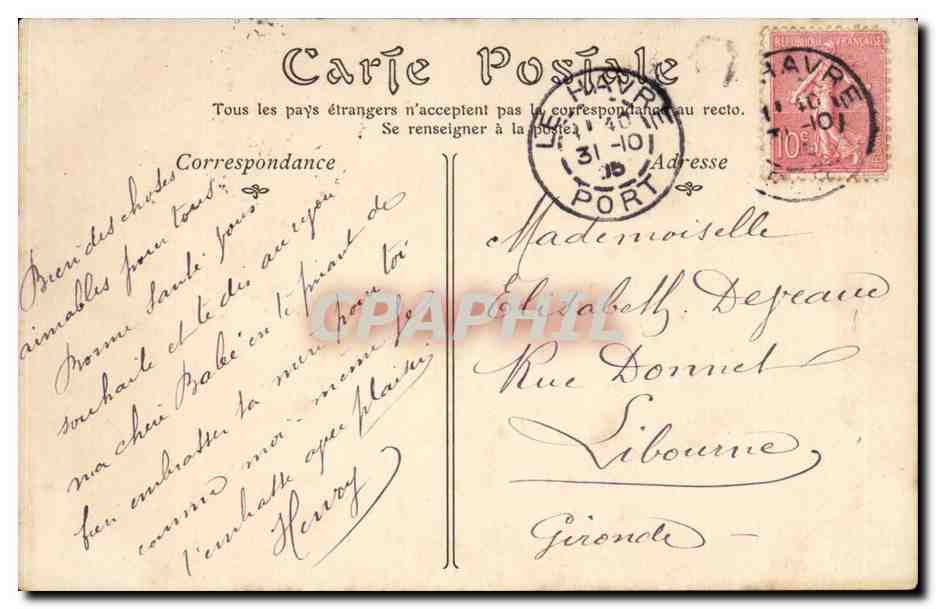 Carte Postale
Tous les pays étrangers n'acceptent pas la correspondance au recto.
Se renseigner à la poste.
Correspondance
Adresse
Bien des choses
aimables pour tous
Bonne Santé je vous
souhaite et te dis au revoir
ma chère Babée en te priant de
bien embrasser ta mère pour toi
comme moi-même je
t'embrasse avec plaisir
Henry
RÉPUBLIQUE FRANÇAISE
10c
LE HAVRE
11 40
31 -10
05
PORT
HAVRE
11 40
31 -10
Mademoiselle
Elisabeth Dejeau
Rue Donnet
Libourne
Gironde
CPAPHIL